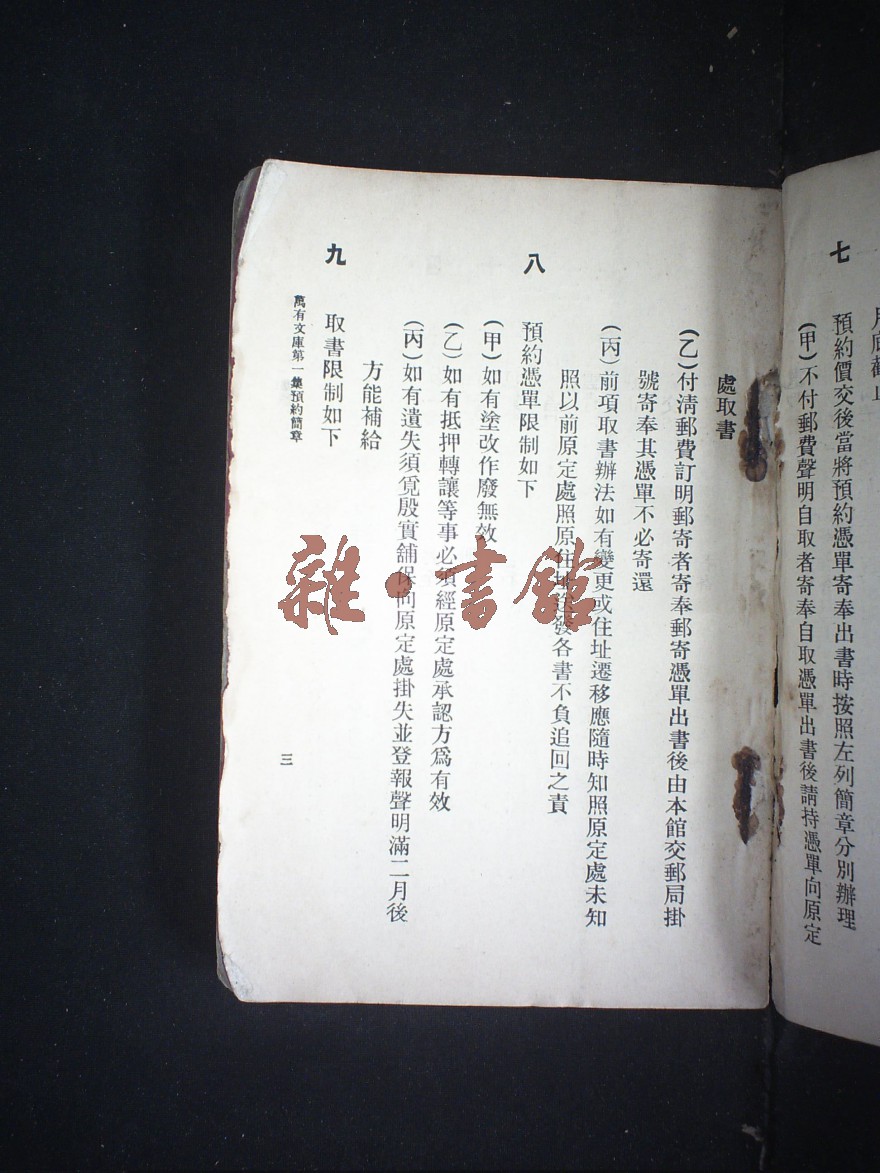 七
預約價交後當將預約憑單寄奉出書時按照左列簡章分別辦理
（甲）不付郵費聲明自取者寄奉自取憑單出書後請持憑單向原定
處取書
（乙）付清郵費訂明郵寄者寄奉郵寄憑單出書後由本館交郵局掛
號寄奉其憑單不必寄還
（丙）前項取書辦法如有變更或住址遷移應隨時知照原定處未知
照以前原定處照原住發各書不負追回之責
八
預約憑單限制如下
（甲）如有塗改作廢無效
（乙）如有抵押轉讓等事必須經原定處承認方爲有效
（丙）如有遺失須覓殷實舖保向原定處掛失並登報聲明滿二月後
方能補給
九
取書限制如下
萬有文庫第一集預約簡章
三
雜·書館